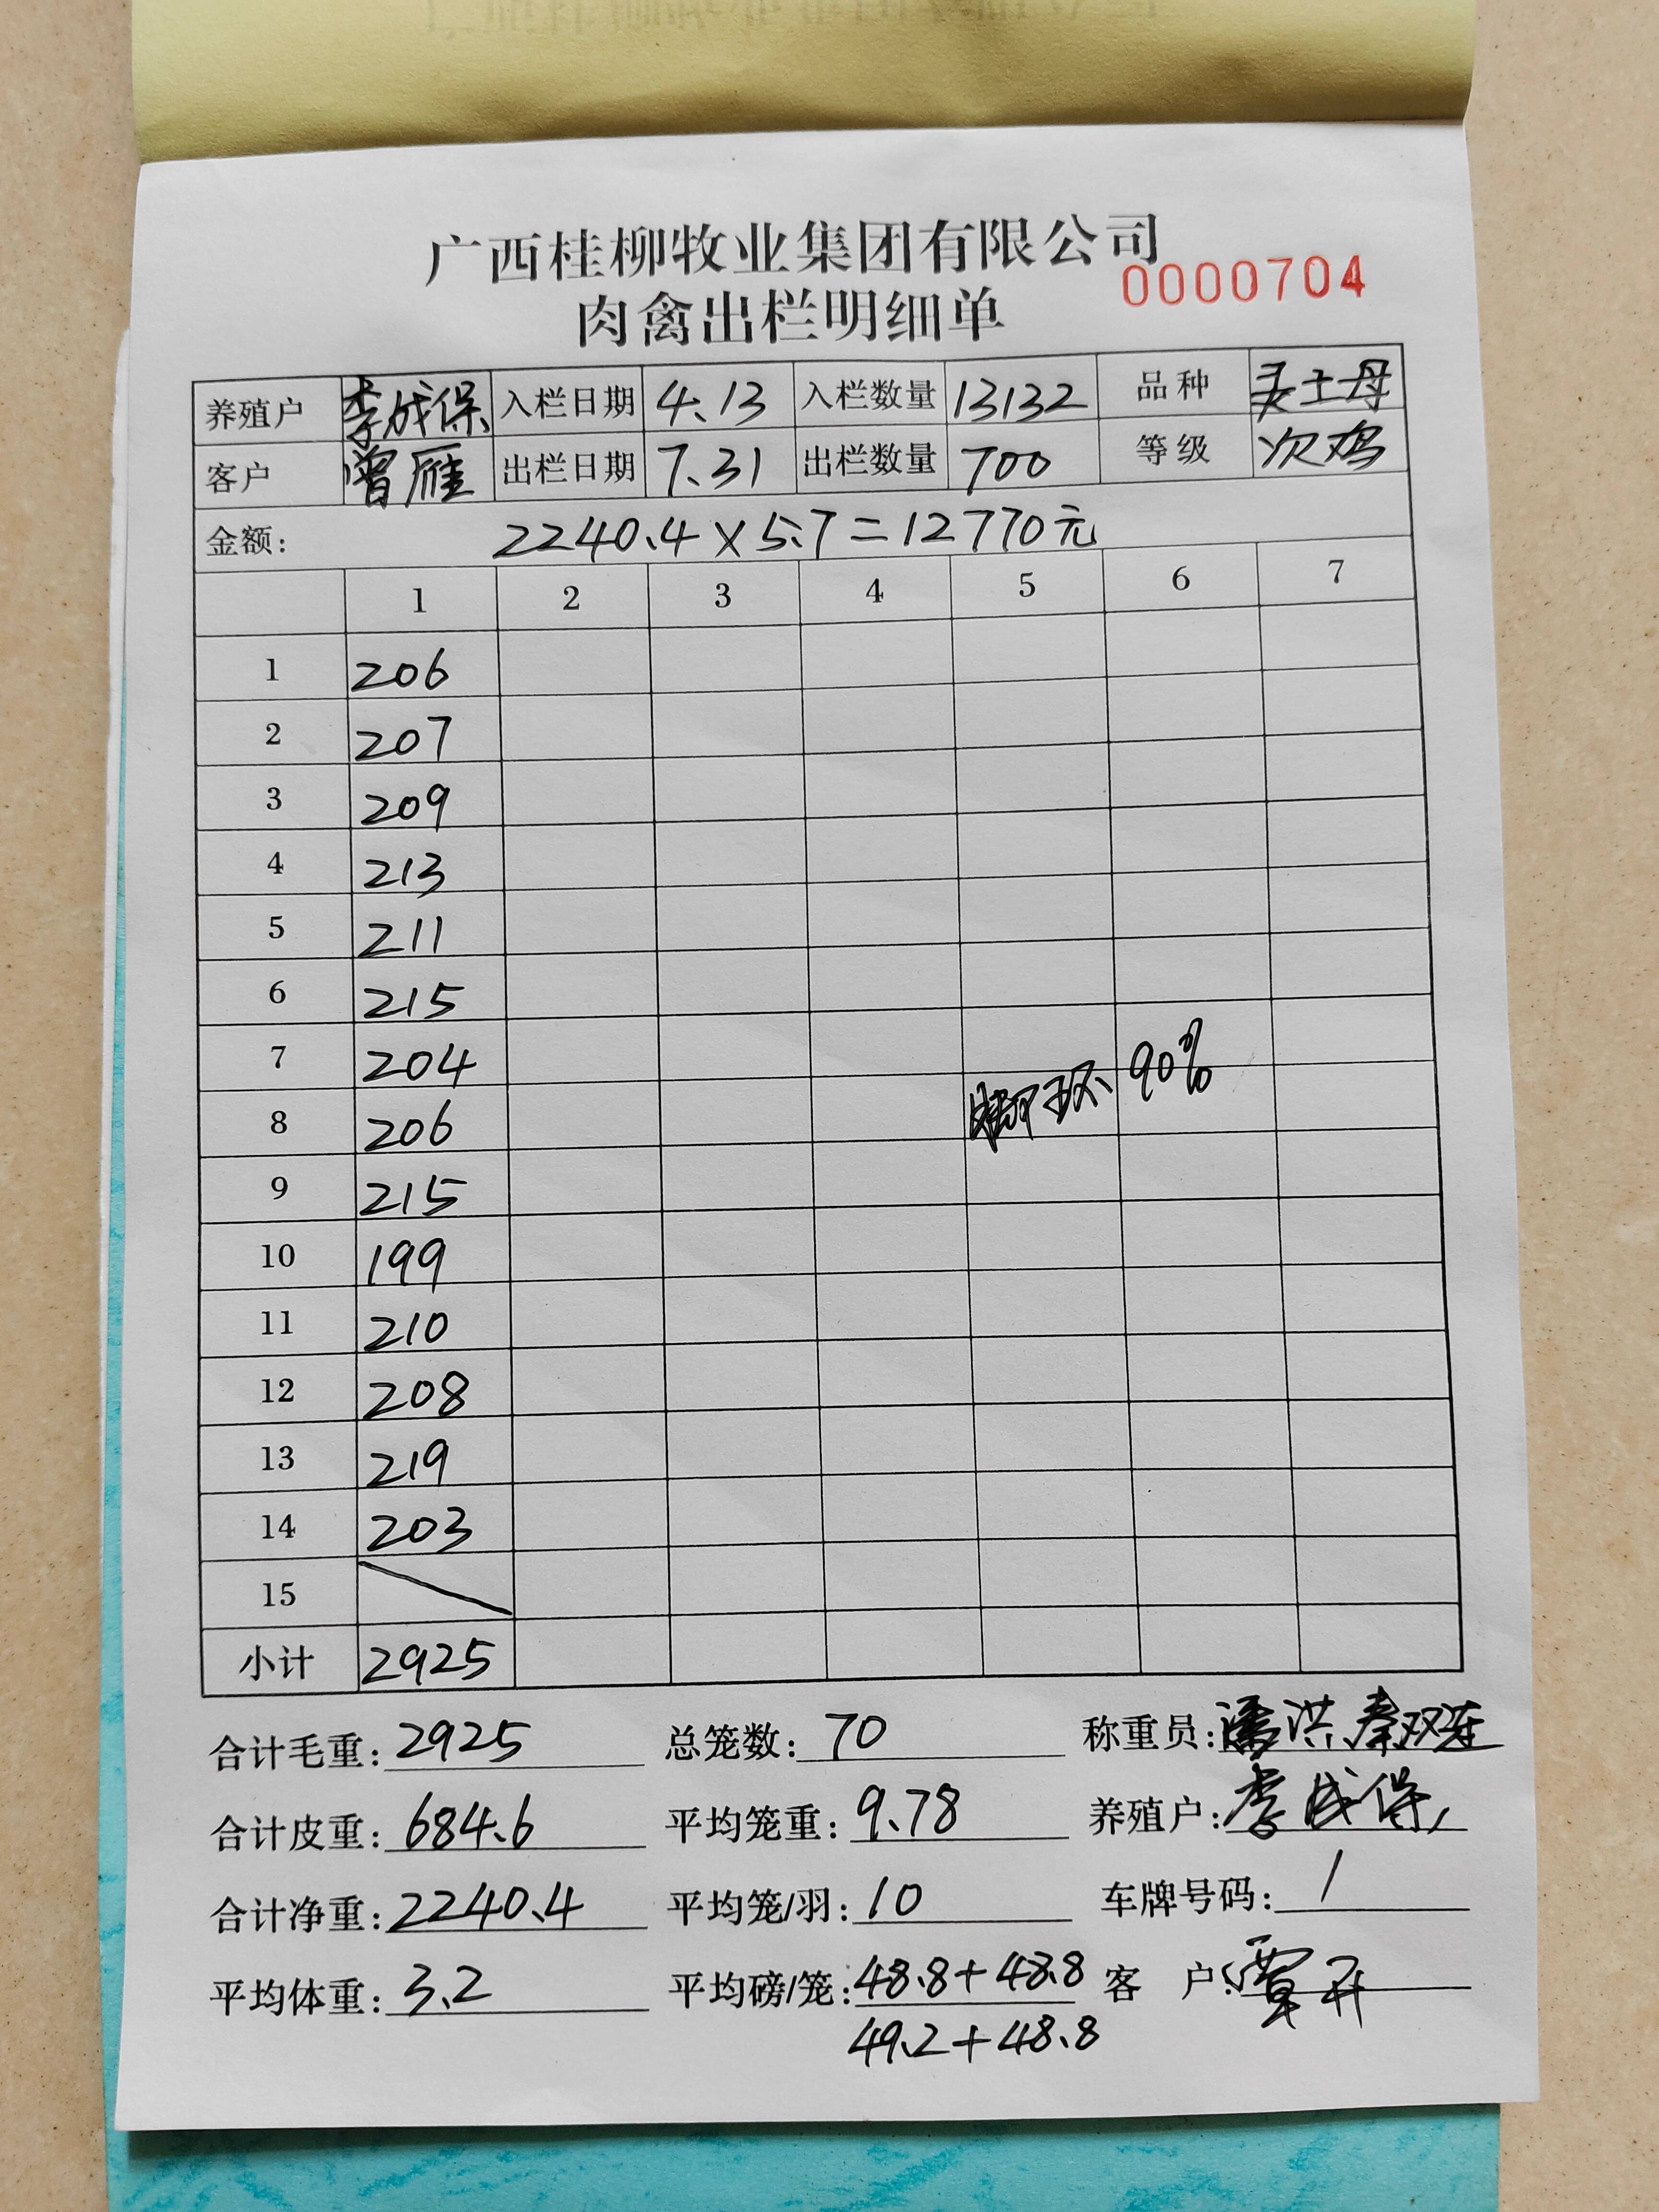 广西桂柳牧业集团有限公司
肉禽出栏明细单
0000704
养殖户 李成保 入栏日期 4.13 入栏数量 13132 品种 土母
客户 曾雁 出栏日期 7.31 出栏数量 700 等级 次鸡
金额: 2240.4×5.7=12770元
1 2 3 4 5 6 7
1 206
2 207
3 209
4 213
5 211
6 215
7 204
脚环 90%
8 206
9 215
10 199
11 210
12 208
13 219
14 203
15
小计 2925
合计毛重: 2925 总笼数: 70 称重员: 潘洪 秦双连
合计皮重: 684.6 平均笼重: 9.78 养殖户: 李成保
合计净重: 2240.4 平均笼/羽: 10 车牌号码: /
平均体重: 3.2 平均磅/笼: 48.8+48.8 客 户: 覃开
49.2+48.8